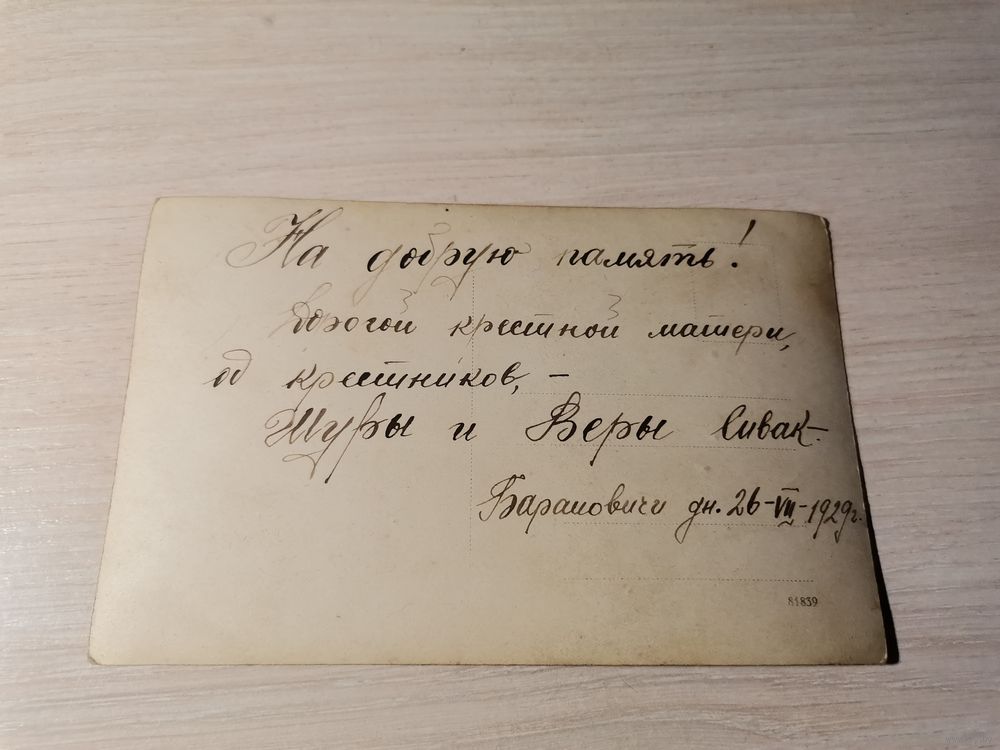 На добрую память!
Дорогой крестной матери,
од крестников, –
Шуры и Веры Сивак-
Барановичи дн. 26-VII-1929г.
81839